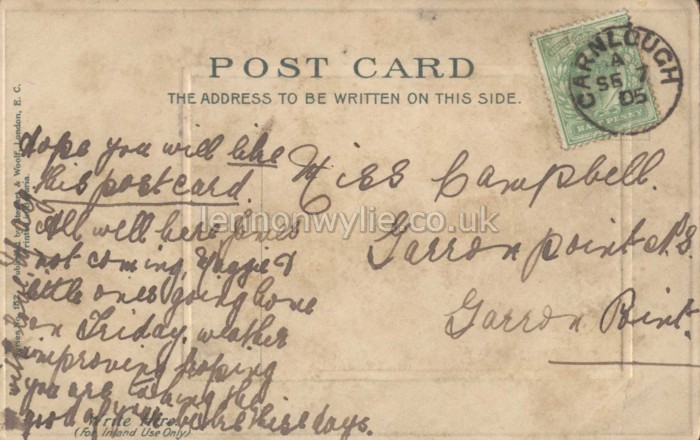 POST CARD
THE ADDRESS TO BE WRITTEN ON THIS SIDE.
CARNLOUGH
A
SE 7
05
HALFPENNY
Hope you will like
this post card.
All well here, James
not coming, Maggie &
little ones going home
on Friday. weather
improving hoping
you are taking the
good of the
days.
Miss Campbell.
Garron point N.S.
Garron Point.
lennonwylie.co.uk
& Woolf, London, E. C.
Write Here.
(For Inland Use Only)